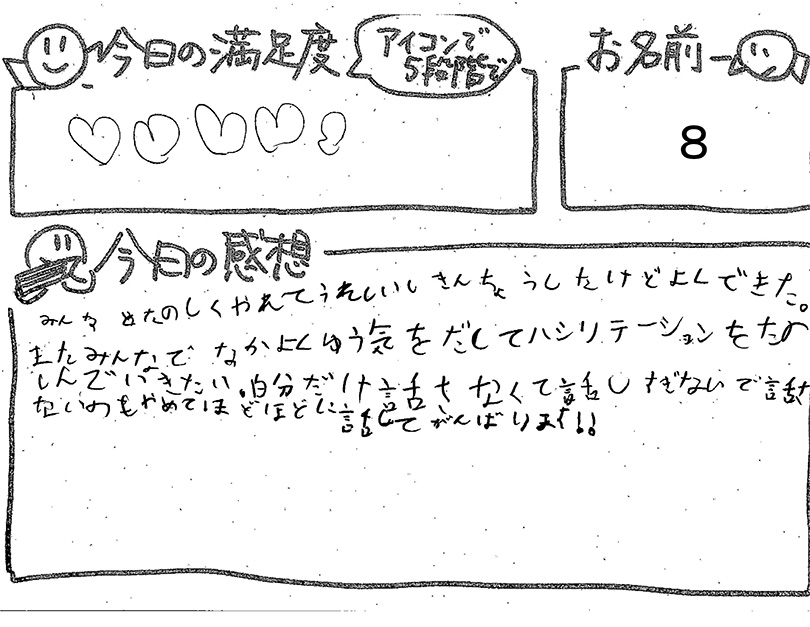 今日の満足度
アイコンで
5段階で
お名前
8
今日の感想
みんなとたのしくやれてうれしいしきんちょうしたけどよくできた。
またみんなでなかよくゆう気をだしてハシリテーションをたの
しんでいきたい。自分だけ話さなくて話しすぎないで話さ
ないのもやめてほどほどに話してがんばります!!